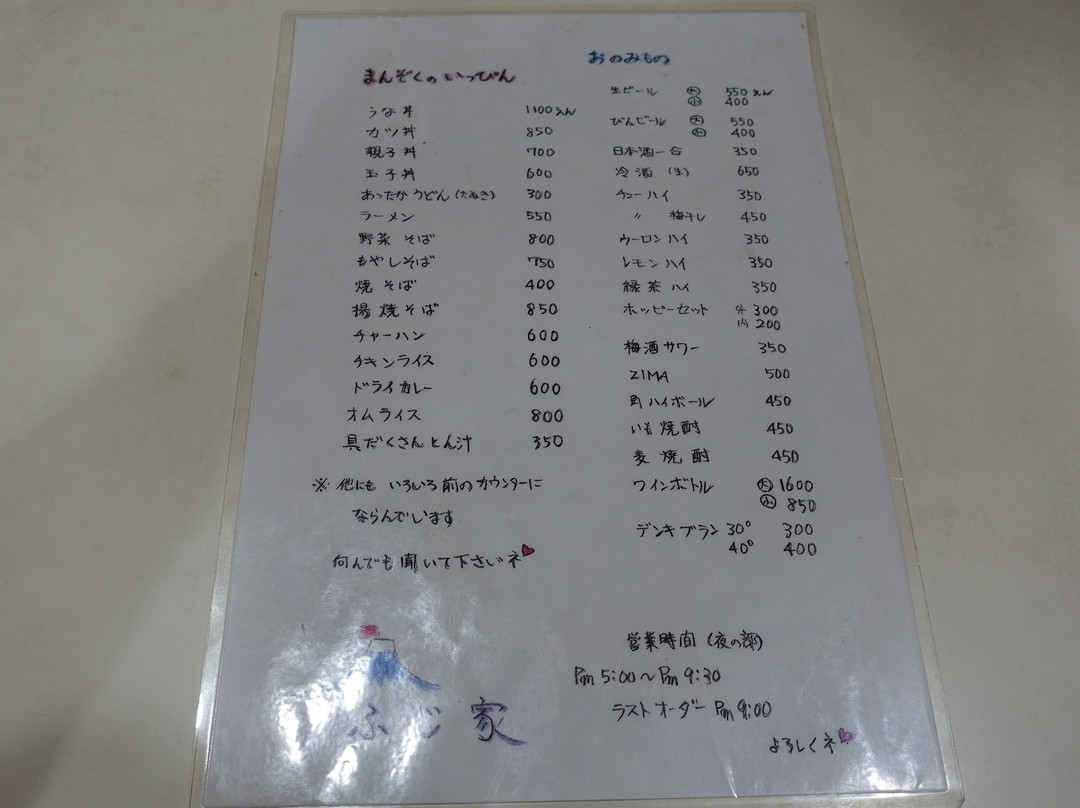 まんぞくの いっぴん
うな丼 1100えん
カツ丼 850
親子丼 700
玉子丼 600
あったかうどん(たぬき) 300
ラーメン 550
野菜そば 800
もやしそば 750
焼そば 400
揚焼そば 850
チャーハン 600
チキンライス 600
ドライカレー 600
オムライス 800
具だくさんとん汁 350
※ 他にも いろいろ前のカウンターに
ならんでいます
何んでも聞いて下さいネ♥
ふじ家
おのみもの
生ビール 大 550えん
小 400
びんビール 大 550
小 400
日本酒一合 350
冷酒(生) 650
チューハイ 350
〃 梅干し 450
ウーロンハイ 350
レモンハイ 350
緑茶ハイ 350
ホッピーセット 外 300
内 200
梅酒サワー 350
ZIMA 500
角ハイボール 450
いも焼酎 450
麦焼酎 450
ワインボトル 大 1600
小 850
デンキブラン 30° 300
40° 400
営業時間(夜の部)
Pm 5:00〜Pm 9:30
ラストオーダー Pm 9:00
よろしくネ♥